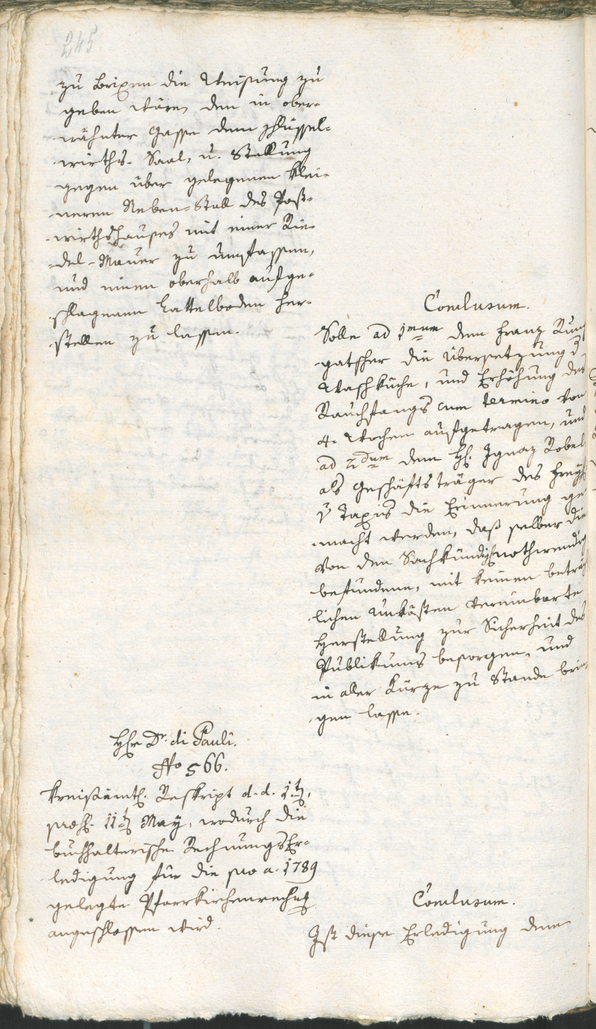 245
zu Brixen die Weisung zu
geben wäre, den in ober-
wähnter Gasse dem Schlüssel-
wirths-Saal, u. Stallung
gegen über gelegenen klei-
neren Neben-Stall des Post-
wirthshauses mit einer Rie-
del-Mauer zu umfassen,
und einen oberhalb aufge-
schlagenen Lattelboden her-
stellen zu lassen.
Conclusum.
Solle ad 1mum dem Franz Run
gatscher die Übersetzung d
Waschküche, und Erhöhung des
Rauchfangs cum termino von
4 Wochen aufgetragen, und
ad 2dum dem H. Ignaz Robel
als Geschäftsträger des Frey
v Taxis die Erinnerung ge
macht werden, daß selber die
von den Sachkündig nothwendig
befundene, mit keinen beträcht
lichen Unkösten vereinbarte
Herstellung zur Sicherheit des
Publikums besorgen, und
in aller Kürze zu Stande brin
gen lasse.
Hr Dr. di Pauli.
No 566.
Kreisämtl. Reskript d. d. 1t,
praes. 11t May, wodurch die
buchhalterische RechnungsEr-
ledigung für die pro a. 1789
gelegte Pfarrkirchenrechng
angeschlossen wird.
Conclusum.
Ist diese Erledigung dem